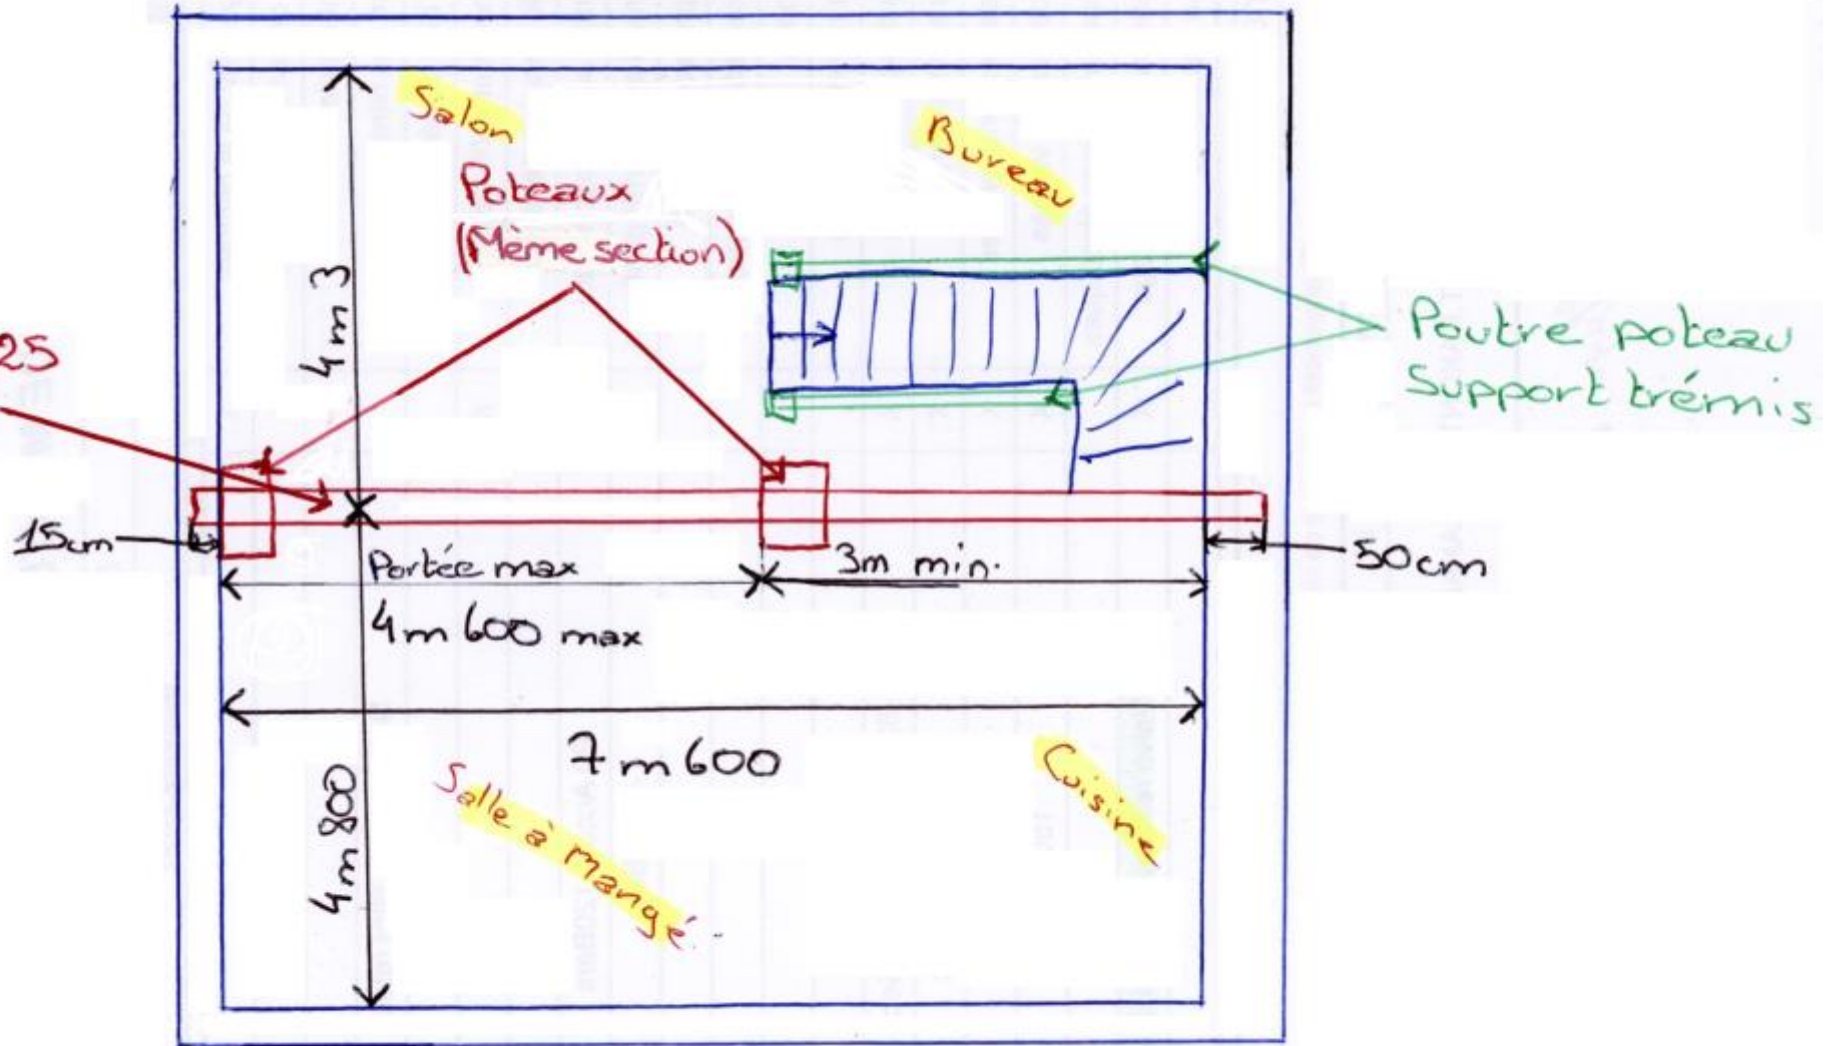 Salon
Bureau
Poteaux
(Même section)
4m3
25
Poutre poteau
Support trémis
15cm
Portée max
3m min.
50cm
4m600 max
7m600
4m800
Salle à Mangé
Cuisine